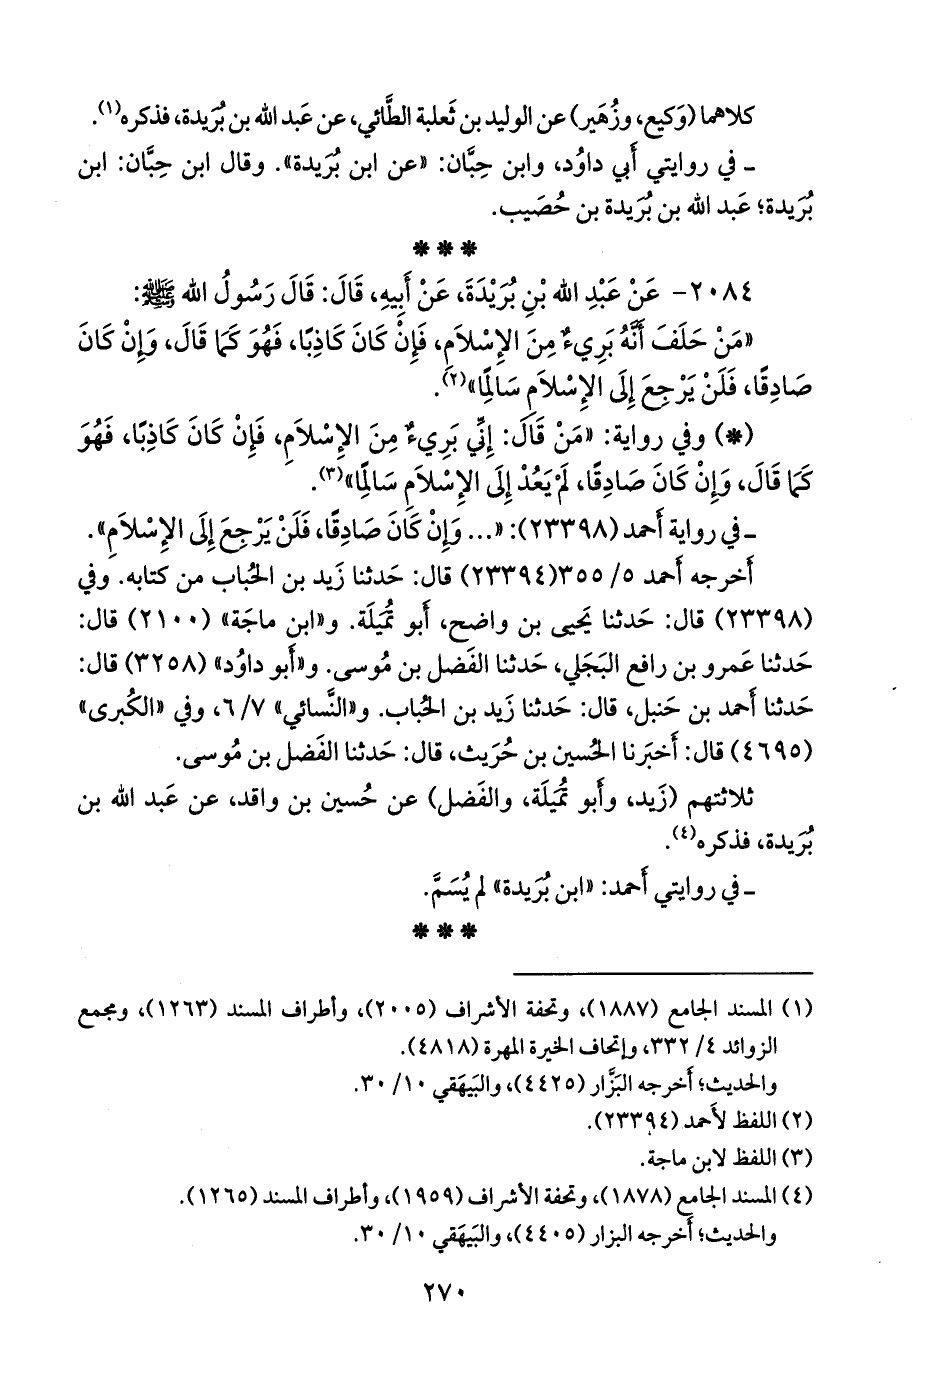 كلاهما (وَكيع، وزُهَير) عن الوليد بن ثَعلبة الطَّائي، عن عَبد الله بن بُرَيدة، فذكره(١).
ـ في روايتي أَبي داوُد، وابن حِبَّان: «عن ابن بُرَيدة». وقال ابن حِبَّان: ابن
بُرَيدة؛ عَبد الله بن بُرَيدة بن حُصَيب.
* * *
٢٠٨٤- عَنْ عَبْدِ الله بْنِ بُرَيْدَةَ، عَنْ أَبِيهِ، قَالَ: قَالَ رَسُولُ الله ﷺ:
«مَنْ حَلَفَ أَنَّهُ بَرِيءٌ مِنَ الإِسْلاَمِ، فَإِنْ كَانَ كَاذِبًا، فَهُوَ كَمَا قَالَ، وَإِنْ كَانَ
صَادِقًا، فَلَنْ يَرْجِعَ إِلَى الإِسْلاَمِ سَالِمًا»(٢).
(*) وفي رواية: «مَنْ قَالَ: إِنِّي بَرِيءٌ مِنَ الإِسْلاَمِ، فَإِنْ كَانَ كَاذِبًا، فَهُوَ
كَمَا قَالَ، وَإِنْ كَانَ صَادِقًا، لَمْ يَعُدْ إِلَى الإِسْلاَمِ سَالِمًا»(٣).
ـ في رواية أَحمد (٢٣٣٩٨): «... وَإِنْ كَانَ صَادِقًا، فَلَنْ يَرْجِعَ إِلَى الإِسْلاَمِ».
أَخرجه أَحمد ٥/ ٣٥٥(٢٣٣٩٤) قال: حَدثنا زَيد بن الحُباب من كتابه. وفي
(٢٣٣٩٨) قال: حَدثنا يَحيى بن واضح، أَبو تُمَيلَة. و«ابن ماجَة» (٢١٠٠) قال:
حَدثنا عَمرو بن رافع البَجَلي، حَدثنا الفَضل بن مُوسى. و«أَبو داوُد» (٣٢٥٨) قال:
حَدثنا أَحمد بن حَنبل، قال: حَدثنا زَيد بن الحُباب. و«النَّسائي» ٦/٧، وفي «الكُبرى»
(٤٦٩٥) قال: أَخبَرنا الحُسين بن حُرَيث، قال: حَدثنا الفَضل بن مُوسى.
ثلاثتهم (زَيد، وأَبو تُمَيلَة، والفَضل) عن حُسين بن واقد، عن عَبد الله بن
بُرَيدة، فذكره(٤).
ـ في روايتي أَحمد: «ابن بُرَيدة» لم يُسَمَّ.
* * *
(١) المسند الجامع (١٨٨٧)، وتحفة الأشراف (٢٠٠٥)، وأطراف المسند (١٢٦٣)، ومجمع
الزوائد ٤/ ٣٣٢، وإتحاف الخيرة المهرة (٤٨١٨).
والحديث؛ أَخرجه البَزَّار (٤٤٢٥)، والبَيهَقي ١٠/ ٣٠.
(٢) اللفظ لأَحمد (٢٣٣٩٤).
(٣) اللفظ لابن ماجة.
(٤) المسند الجامع (١٨٧٨)، وتحفة الأشراف (١٩٥٩)، وأطراف المسند (١٢٦٥).
والحديث؛ أَخرجه البزار (٤٤٠٥)، والبَيهَقي ١٠/ ٣٠.
٢٧٠